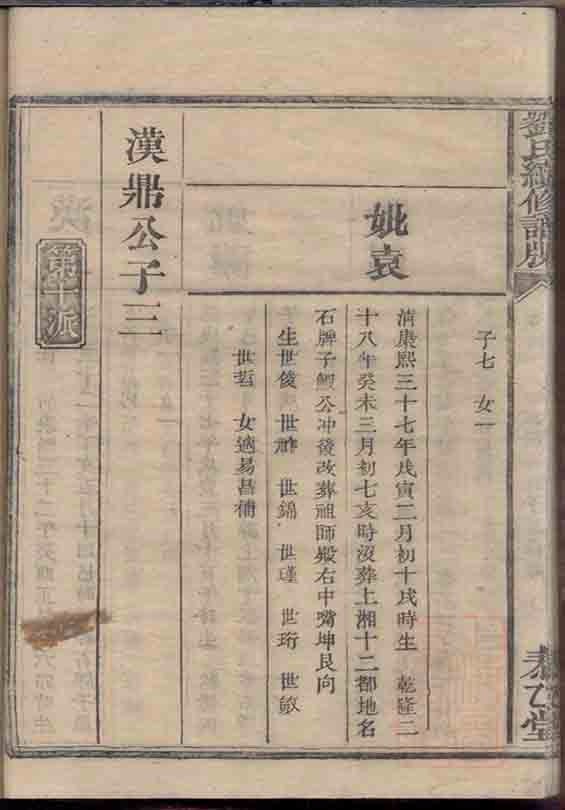 劉氏續修譜版
㤗乙堂
子七 女一
妣袁
清康熙三十七年戊寅二月初十戌時生 乾隆二
十八年癸未三月初七亥時沒葬上湘十二都地名
石牌子鯽公冲後改葬祖師殿右中嘴坤艮向
生世俊 世 世錦 世瑾 世珩 世敏
世哲 女適易昌補
漢鼎公子三
第十派